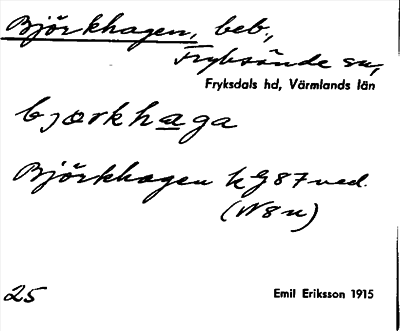 Björkhagen, beb.,
Fryksände sn,
Fryksdals hd, Värmlands län
bjorkhaga
Björkhagen kg 87 ned.
(N8u)
25
Emil Eriksson 1915